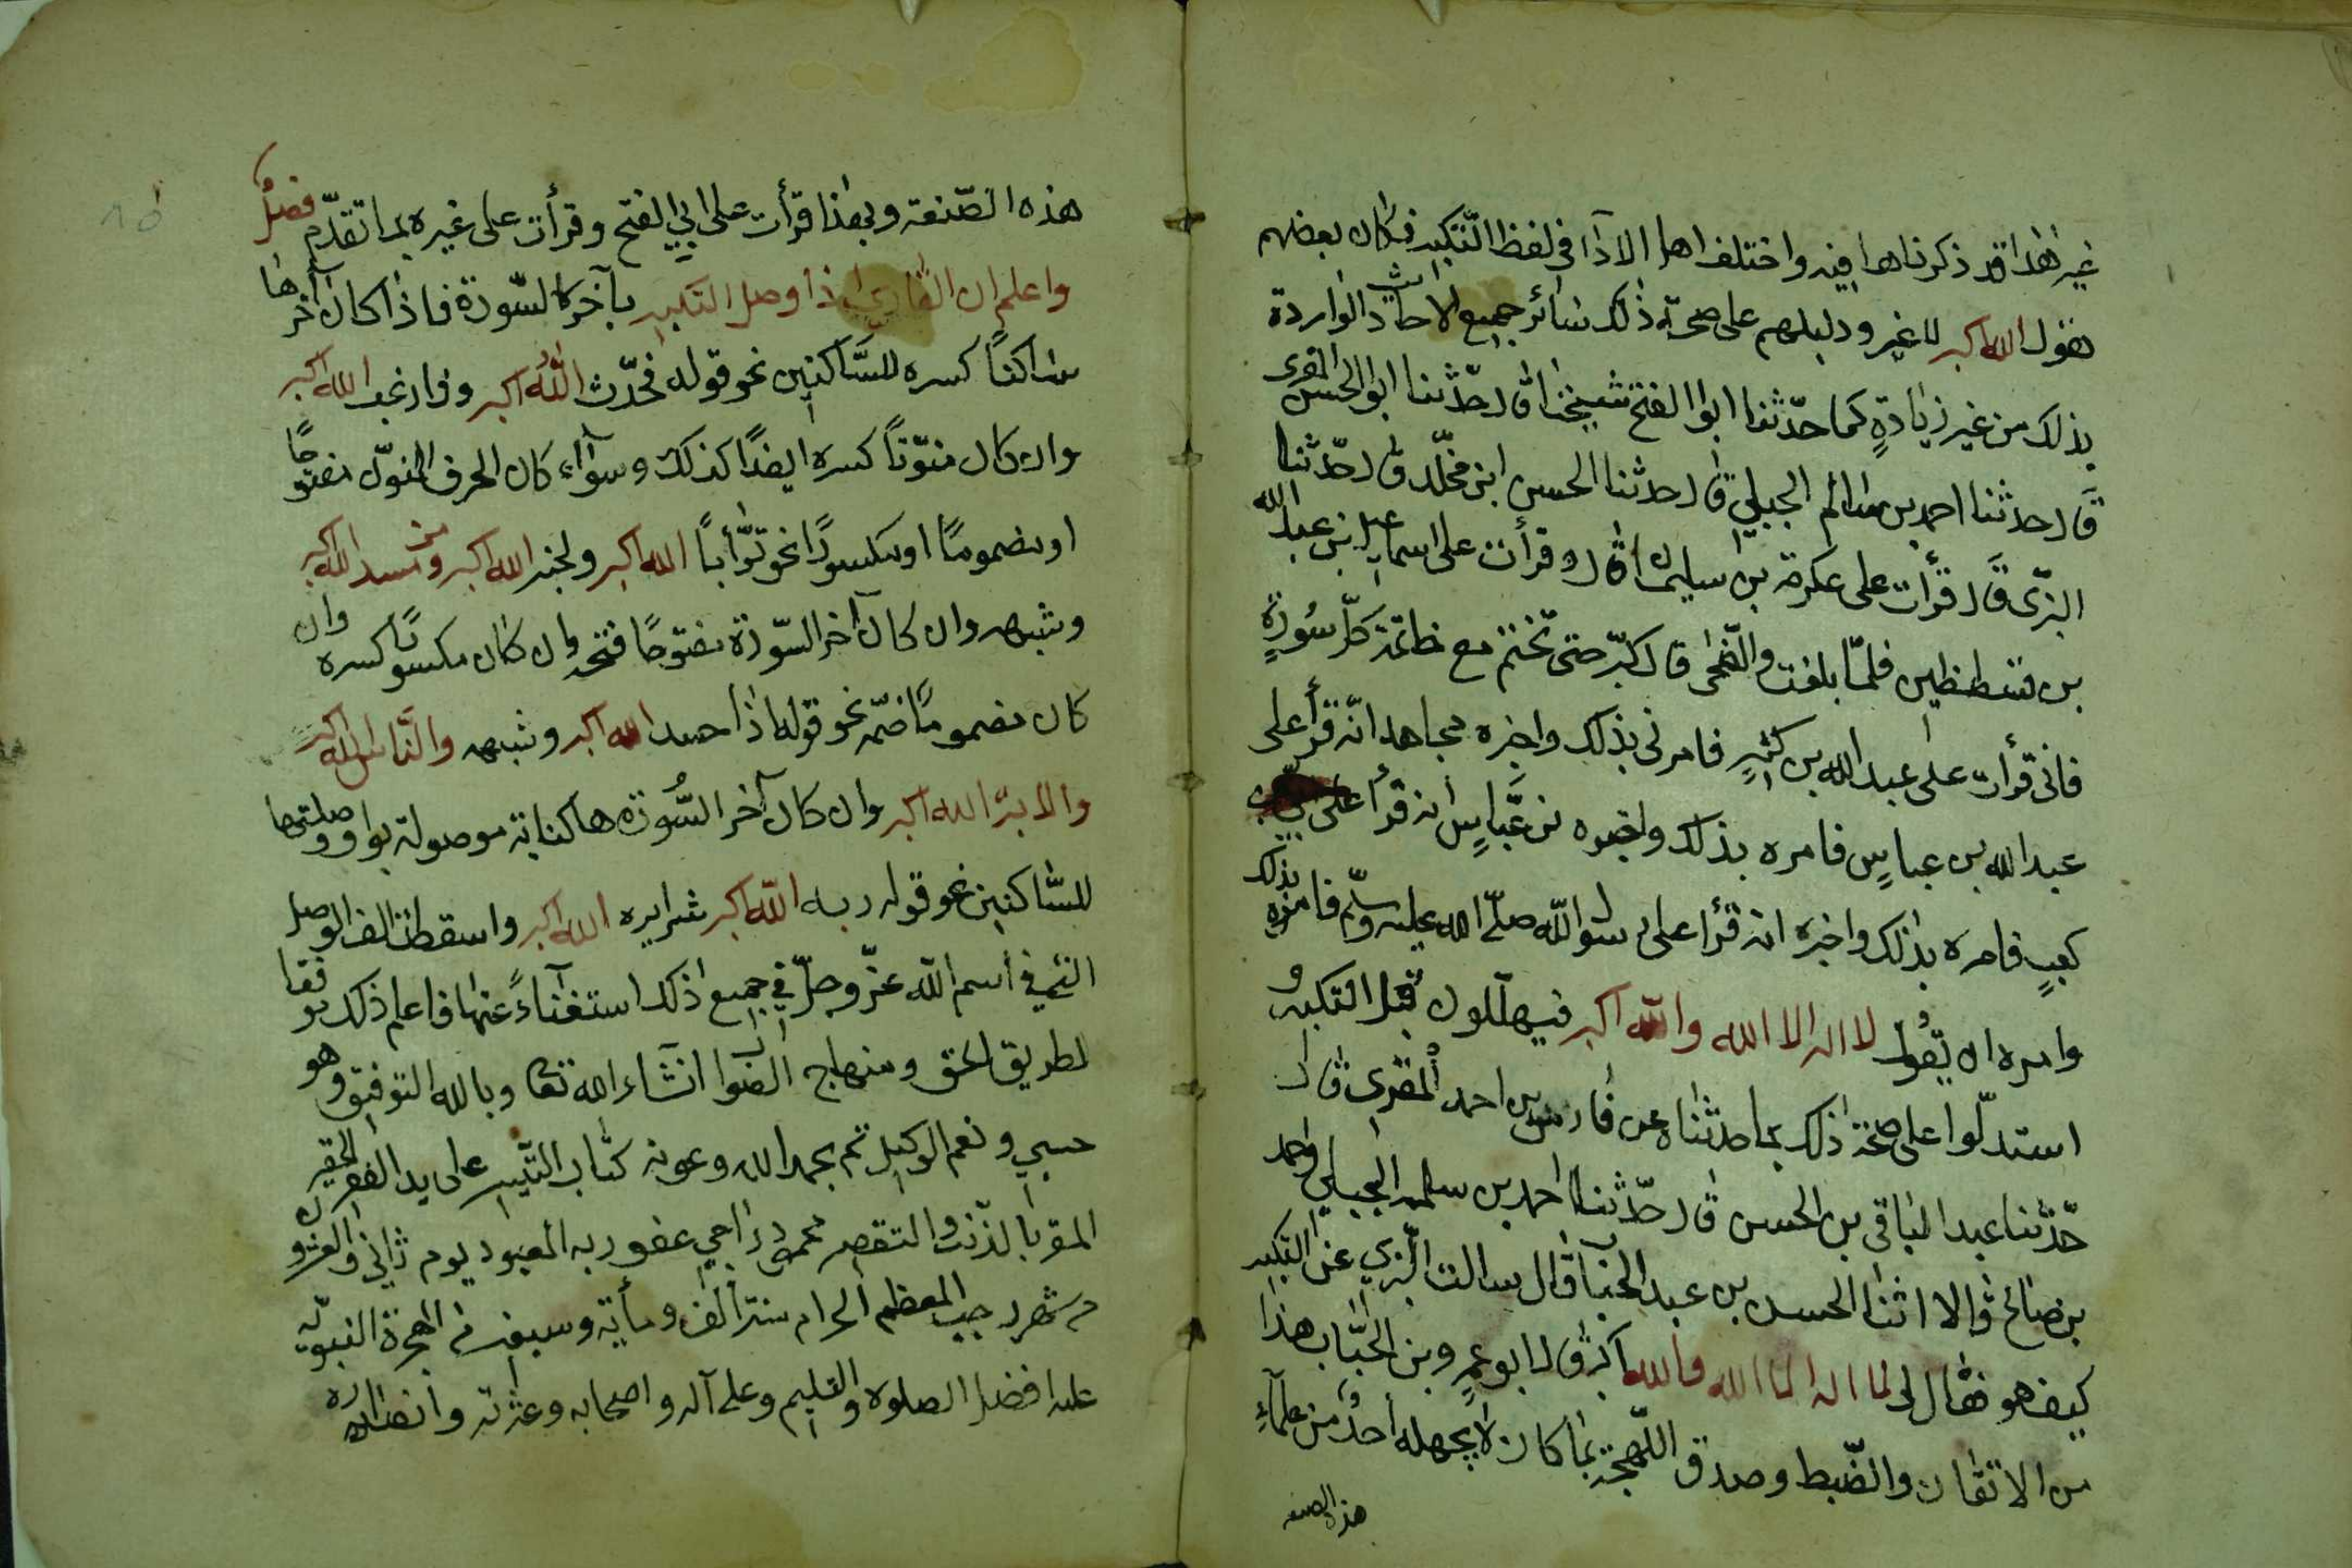 غير هذا قد ذكرناها فيه واختلف اهل الادا في لفظ التكبير فكان بعضهم
يقول الله اكبر لا غير ودليلهم على صحة ذلك سائر جميع الاحاديث الواردة
بذلك من غير زيادةٍ كما حدّثنا ابوا الفتح شيخنا قال حدّثنا ابو الحسن المقرى
قال حدثنا احمد بن سالم الجبلي قال حدثنا الحسن ابن مخلّد قال حدّثنا
البزّى قال قرأت على عكرمة بن سليمان قال قرأت على اسماعيل بن عبد الله
بن قسطنطين فلمّا بلغت والضّحى قال كبّر حتى تختم مع خاتمة كلّ سُورةٍ
فانى قرأت على عبد الله بن كثيرٍ فامرنى بذلك واخبره مجاهد انّه قرأ على
عبد الله بن عباسٍ فامره بذلك واخبره بن عبّاسٍ انه قرأ على ابيّ بن
كعبٍ فامره بذلك واخبره انه قرأ على رسول الله صلّى الله عليه وسلّم فامره بذلك
وامره ان يقول لا اله الا الله والله اكبر فيهلّلون قبل التكبير و
استدلّوا على صحّة ذلك بما حدثناه عن فارس بن احمد المقرى قال
حدّثنا عبد الباقى بن الحسن قال حدّثنا احمد بن سلمه الجبلي واحمد
بن صالح قالا اثنا الحسن بن عبد الحباب قال سالت البزي عن التكبير
كيف هو فقال لى لا اله الا الله والله اكبر قال ابو عمرٍ وبن الحبّاب هذا
من الاتقان والضّبط وصدق اللّهجة بما كان لا يجهله احدٌ من علمآءِ
هذه الصنعه
هذه الصّنعة وبهذا قرأت على ابي الفتح وقرأت على غيره بما تقدّم فصلٌ
واعلم ان القاري اذا وصل التكبير بآخر السّورة فاذا كان آخرها
ساكنًا كسره للسَّاكنين نحو قوله فحدّث اللهُ اكبر وفارغب الله اكبر
وان كان منوّنًا كسره ايضًا كذلك وسوآء كان الحرف المنوّن مفتوحًا
او مضمومًا او مكسورًا نحو توّابًا الله اكبر ولخبير الله اكبر ومن مسد الله اكبر
وشبهه وان كان آخر السّورة مفتوحًا فتحه وان كان مكسورًا كسره وان
كان مضمومًا ضمّه نحو قوله اذا حسد الله اكبر وشبهه والنّاس الله اكبر
والابترُ الله اكبر وان كان آخر السُّورة ها كناية موصولة بواو وصلتها
للسّاكنين نحو قوله ربه الله اكبر شرايره الله اكبر واسقطت الف الوصل
التى في اسم الله عزّ وجلّ في جميع ذلك استغنآءً عنها فاعلم ذلك موفقا
لطريق الحق ومنهاج الصواب انشاء الله تعا وبالله التوفيق وهو
حسبي ونعم الوكيل تم بحمد الله وعونه كتاب التّيسير على يد الفقير الحقير
المقر بالذّنب والتقصير محمود راجي عفو ربه المعبود يوم ثاني والعشرون
من شهر رجب المعظم الحرام سنة الف ومأية وسبعين من الهجرة النبويّه
عليه افضل الصلوة والتسليم وعلى آله واصحابه وعترته وانصاره